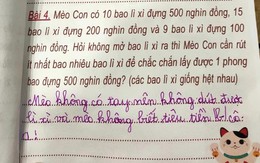 Bài 4. Mèo Con có 10 bao lì xì đựng 500 nghìn đồng, 15
bao lì xì đựng 200 nghìn đồng và 9 bao lì xì đựng 100
nghìn đồng. Hỏi không mở bao lì xì ra thì Mèo Con cần rút
ít nhất bao nhiêu bao lì xì để chắc chắn lấy được 1 phong
bao đựng 500 nghìn đồng? (các bao lì xì giống hệt nhau)
Mèo không có tay nên không rút được
lì xì và mèo không biết tiêu tiền